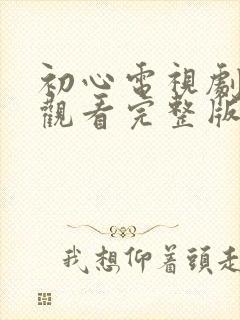 初心電視劇
觀看完整版
我想仰着頭走